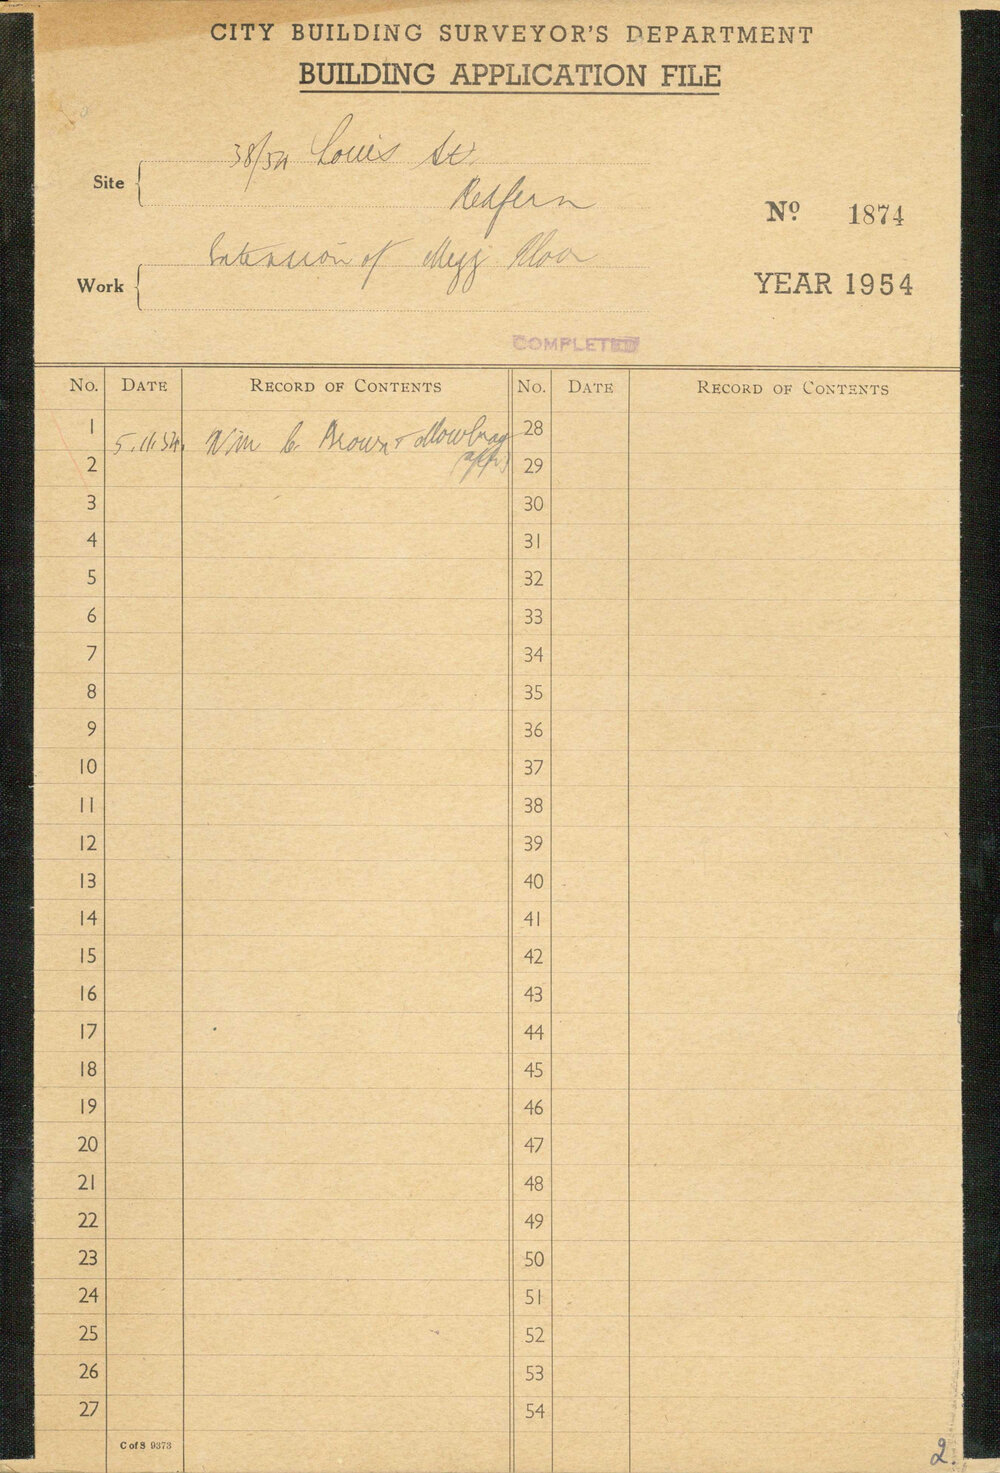 CITY BUILDING SURVEYOR'S DEPARTMENT
BUILDING APPLICATION FILE
Site
38/54 Louis St.
Redfern
Nº 1874
Work
Extension of Mezz Floor
YEAR 1954
COMPLETED
No. DATE RECORD OF CONTENTS No. DATE RECORD OF CONTENTS
1 5.11.54. Wm C. Brown & Mowbray 28
2 29
3 30
4 31
5 32
6 33
7 34
8 35
9 36
10 37
11 38
12 39
13 40
14 41
15 42
16 43
17 44
18 45
19 46
20 47
21 48
22 49
23 50
24 51
25 52
26 53
27 54
C of S 9373
2.